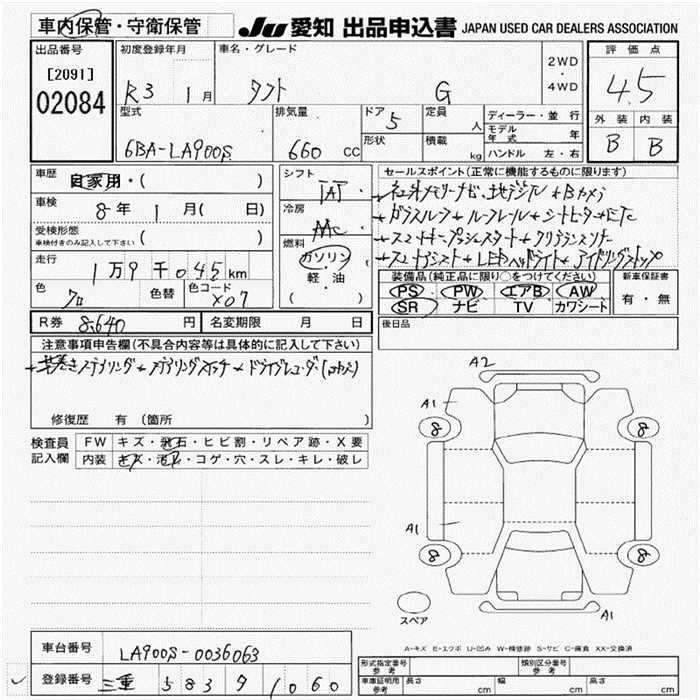 車内保管・守衛保管
JU 愛知 出品申込書 JAPAN USED CAR DEALERS ASSOCIATION
出品番号
[2091]
02084
初度登録年月
R3 1月
車名・グレード
タフト G
2WD
・
4WD
評価点
4.5
外装 内装
B B
型式
6BA-LA900S
排気量
660 CC
ドア
5
形状
定員
人
積載
kg
ディーラー・並行
モデル年式 年
ハンドル 左・右
車歴
自家用・( )
車検
8年 1月( 日)
受検形態
車検付きのみ記入して下さい ( )
走行
1万9千045km
色
クロ
色替
色コード
X07
シフト
IAT
冷房
AAC
燃料
ガソリン
軽・油
( )
セールスポイント(正常に機能するものに限ります)
ナビ 地デジTV + Bカメラ
ガラスルーフ + ルーフレール + シートヒーター + ETC
スマートキー プッシュスタート + クリアランスソナー
スマートアシスト + LEDヘッドライト + アイドリングストップ
装備品(純正品に限り○をつけてください)
PS PW エアB AW
SR ナビ TV カワシート
新車保証書
有・無
後日品
R券 8,640 円
名変期限 月 日
注意事項申告欄(不具合内容等は具体的に記入して下さい)
革巻きステアリング + ステアリングスイッチ + ドライブレコーダー
修復歴 有 (箇所 )
検査員
記入欄
FW キズ・飛石・ヒビ割・リペア跡・X要
内装 キズ・汚れ・コゲ・穴・スレ・キレ・破レ
A2
A1
8 8
A1
8 8
A1
スペア
A-キズ E-エクボ U-凹み W-補修跡 S-サビ C-腐食 XX-交換済
車台番号 LA900S-0036063
登録番号 三重 583 タ 1060
型式指定番号
参考
類別区分番号
参考
車庫証明用
参考
長さ cm 幅 cm 高さ cm